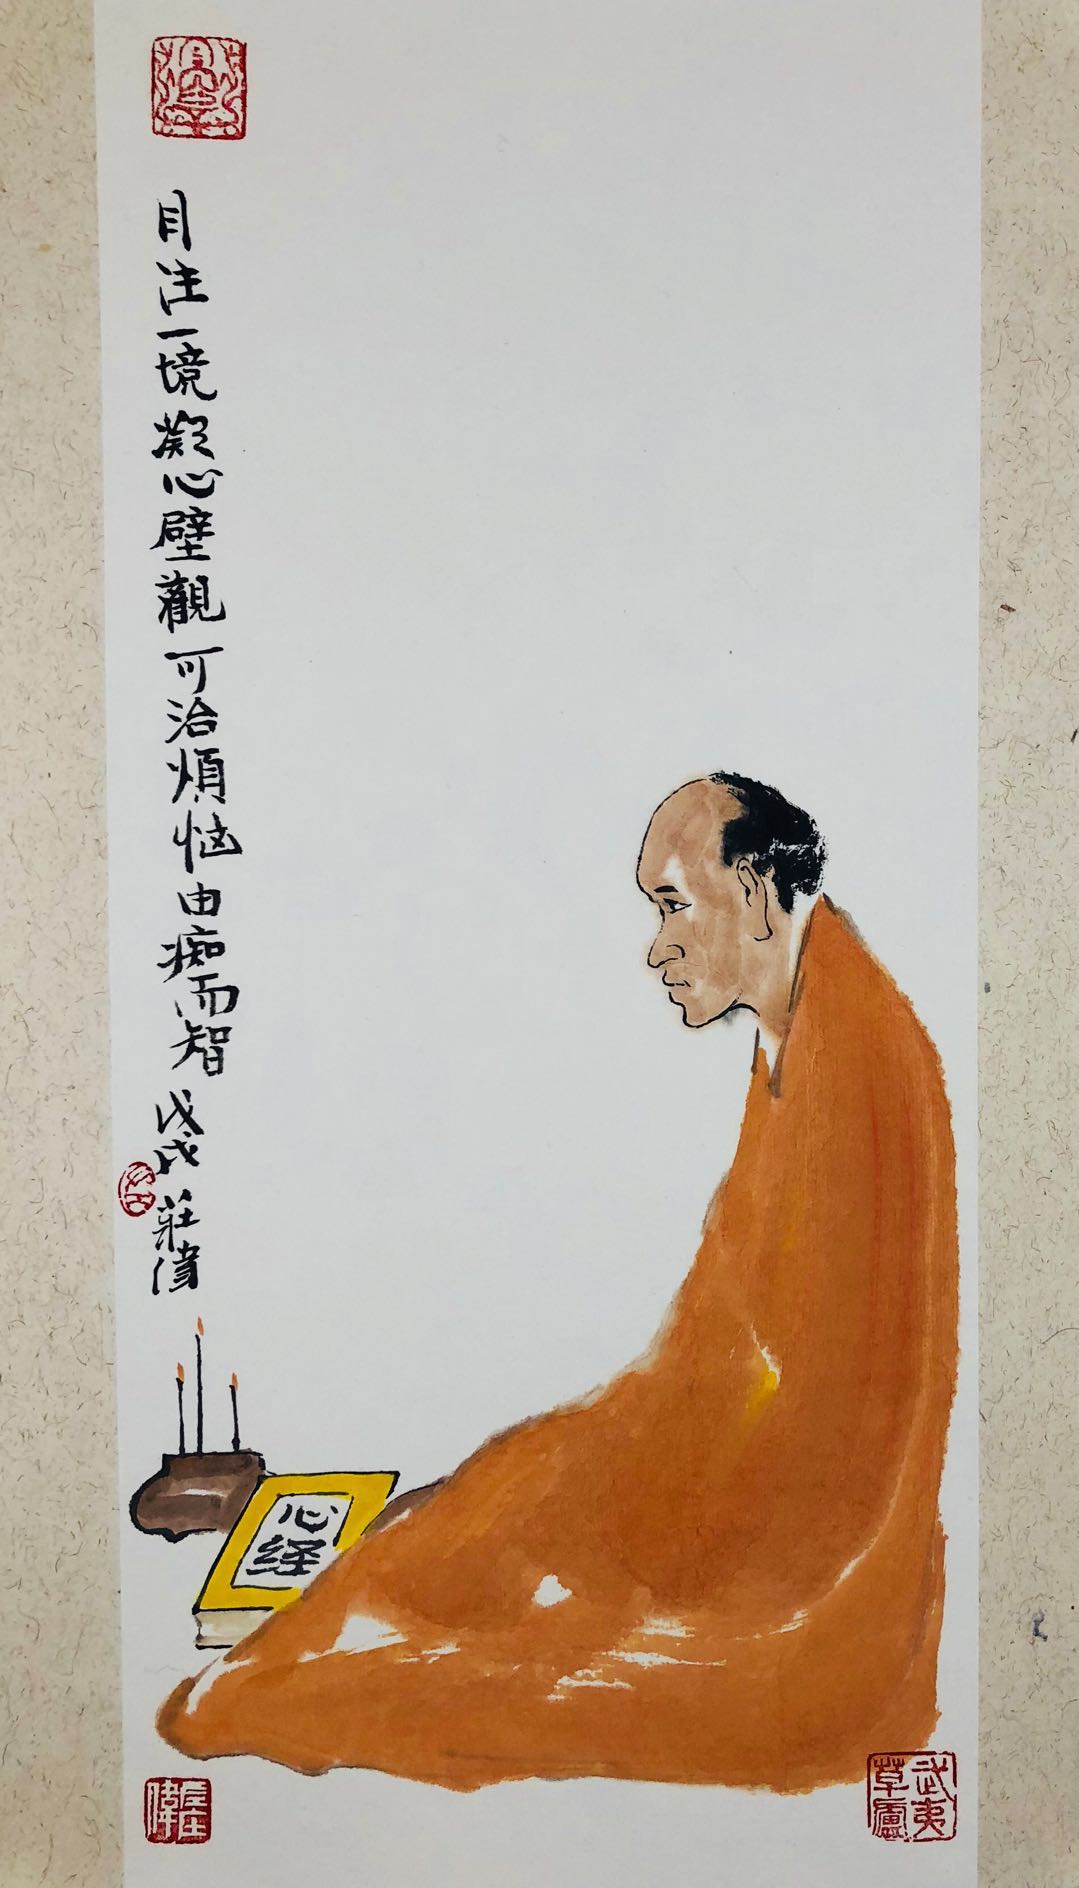 目注一境凝心壁觀可治煩恼由痴而智戊戌莊偉
心
经
武夷
草廬
莊偉